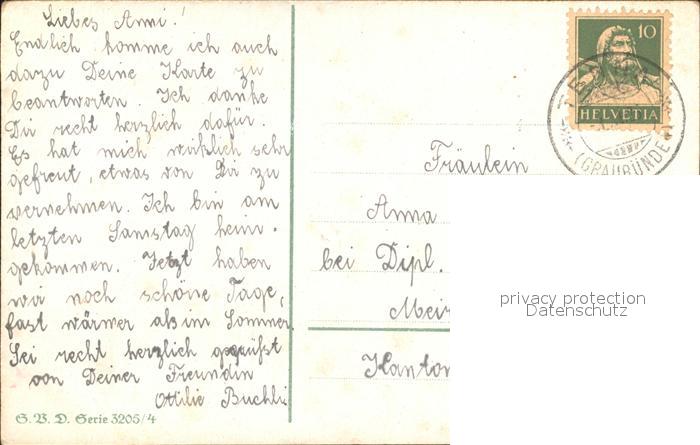 Liebes Anni!
Endlich komme ich auch
dazu Deine Karte zu
beantworten. Ich danke
Dir recht herzlich dafür.
Es hat mich wirklich sehr
gefreut, etwas von Dir zu
vernehmen. Ich bin am
letzten Samstag heim-
gekommen. Jetzt haben
wir noch schöne Tage,
fast wärmer als im Sommer.
Sei recht herzlich gegrüsst
von Deiner Freundin
Ottilie Buchli
S. V. D. Serie 3205/4
10
HELVETIA
(GRAUBÜNDEN)
Fräulein
Anna
bei Dipl.
Meir
Kanton
privacy protection
Datenschutz